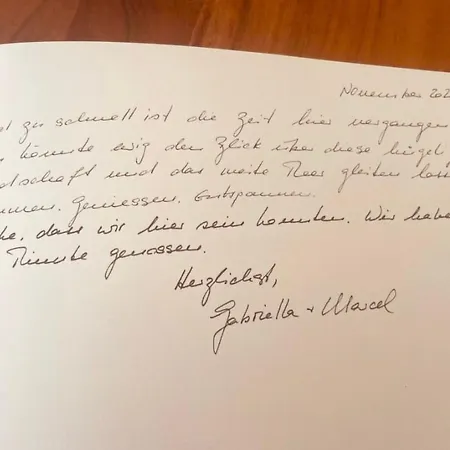 November 202
zu schnell ist die Zeit hier vergangen
könnte ewig den Blick über diese hügel
dschaft und das weite Meer gleiten lass
men. Geniessen. Entspannen.
ke, dass wir hier sein konnten. Wir habe
Minute genossen.
Herzlichst,
Gabriella + Marcel